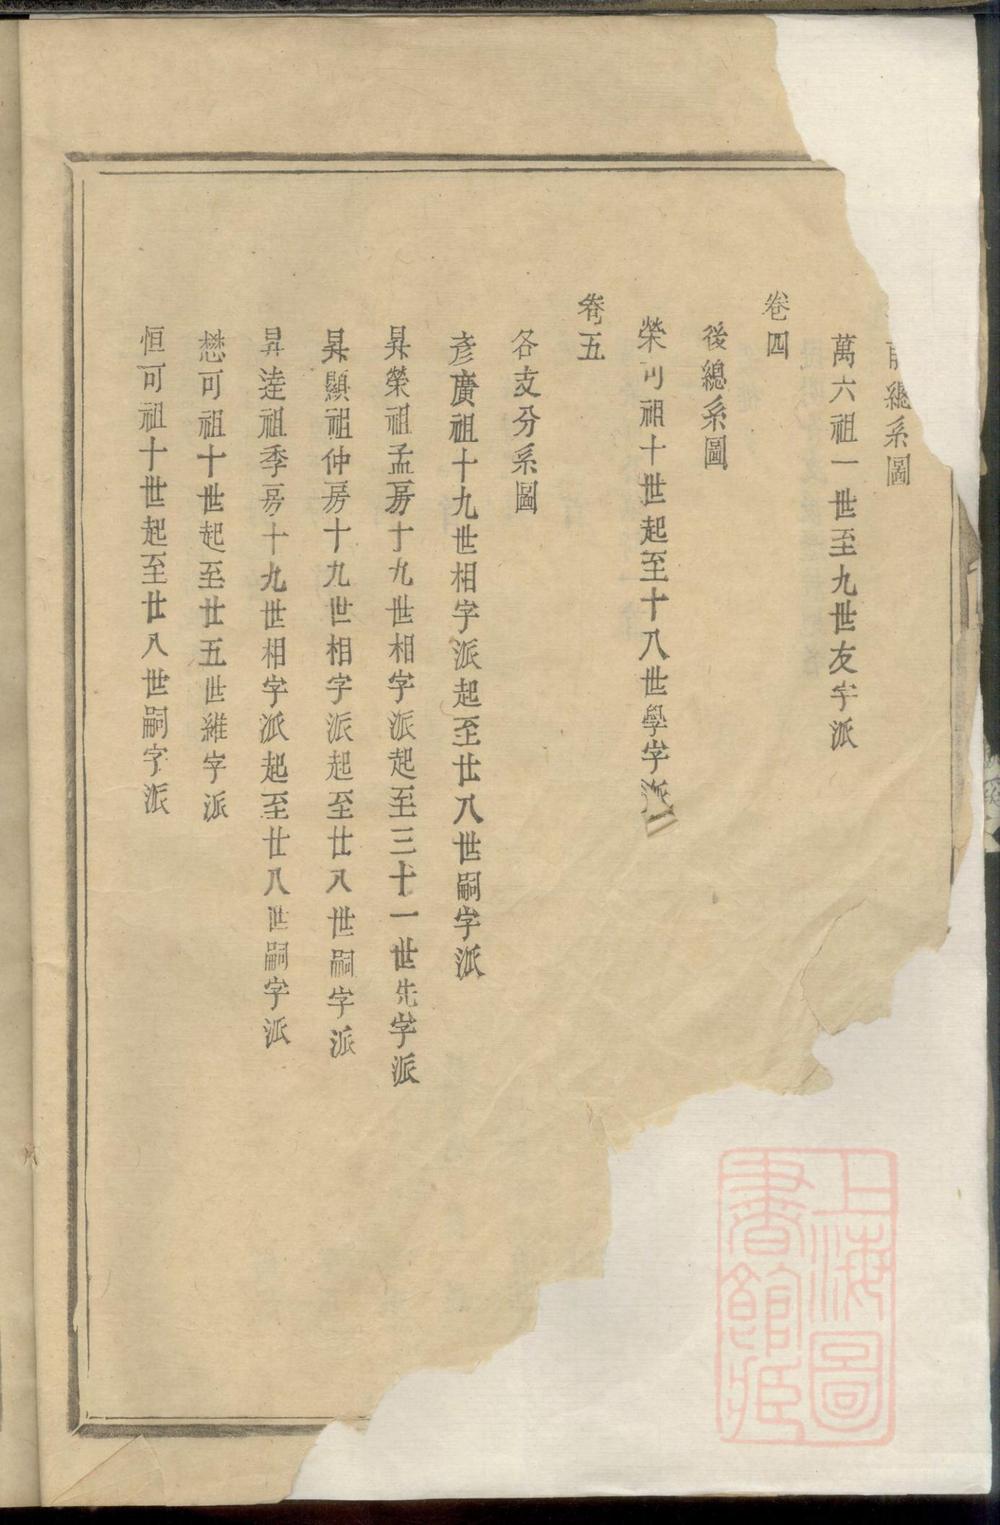 前總系圖
萬六祖一世至九世友字派
卷四
後總系圖
榮可祖十世起至十八世學字派
卷五
各支分系圖
彥廣祖十九世相字派起至廿八世嗣字派
昇榮祖孟房十九世相字派起至三十一世先字派
昇顯祖仲房十九世相字派起至廿八世嗣字派
昇逵祖季房十九世相字派起至廿八世嗣字派
懋可祖十世起至廿五世維字派
恒可祖十世起至廿八世嗣字派
上海圖
書館藏